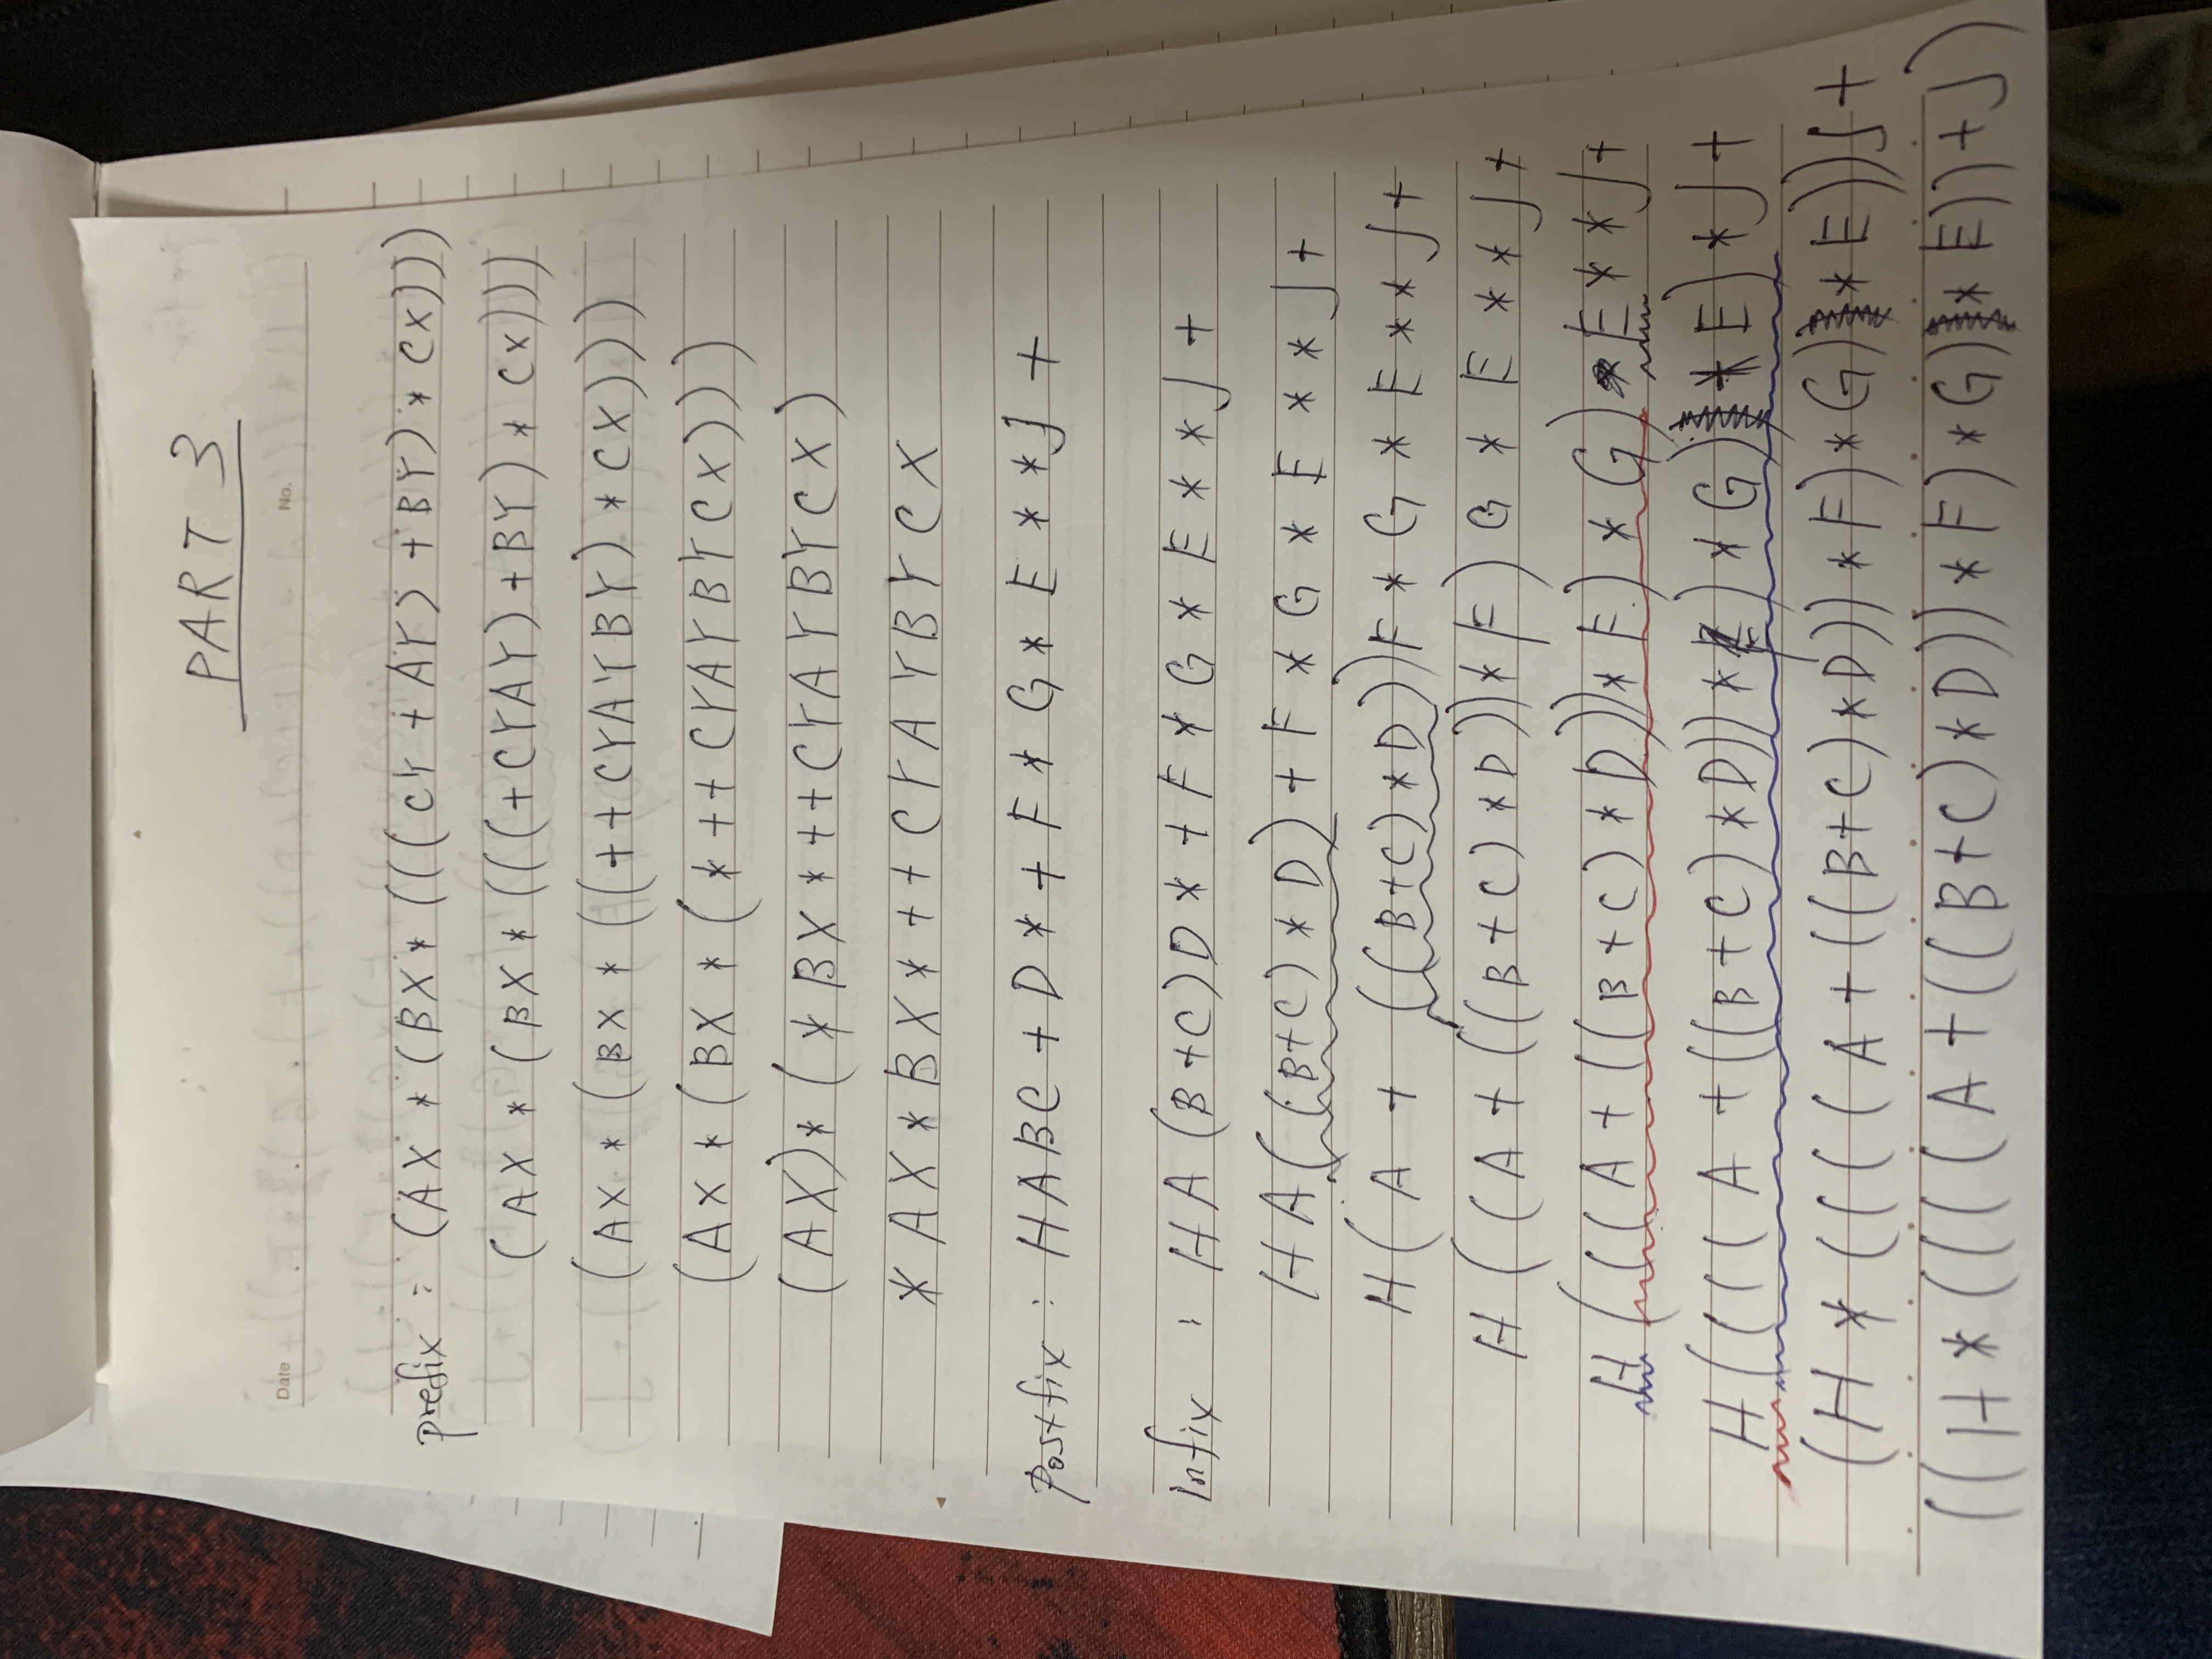 PART 3
Date
No.
prefix : (AX * (BX * (((CY + AY) + BY) * CX)))
(AX * (BX * (((+CYAY) + BY) * CX)))
(AX * (BX * ((++CYAYBY) * CX)))
(AX * (BX * (*++CYAYBYCX)))
(AX) * (*BX*++CYAYBYCX)
*AX*BX*++CYAYBYCX
Postfix : HABC + D * + F * G * E * * J +
Infix : HA(B+C)D * + F * G * E * * J +
HA((B+C) * D) + F * G * E * * J +
H(A + ((B+C) * D))F * G * E * * J +
H((A + ((B+C) * D)) * F) G * E * * J +
H(((A + ((B+C) * D)) * F) * G) E * * J +
H((((A + ((B+C) * D)) * F) * G) * E) * J +
(H * ((((A + ((B+C) * D)) * F) * G) * E)) J +
((H * ((((A + ((B+C) * D)) * F) * G) * E)) + J)